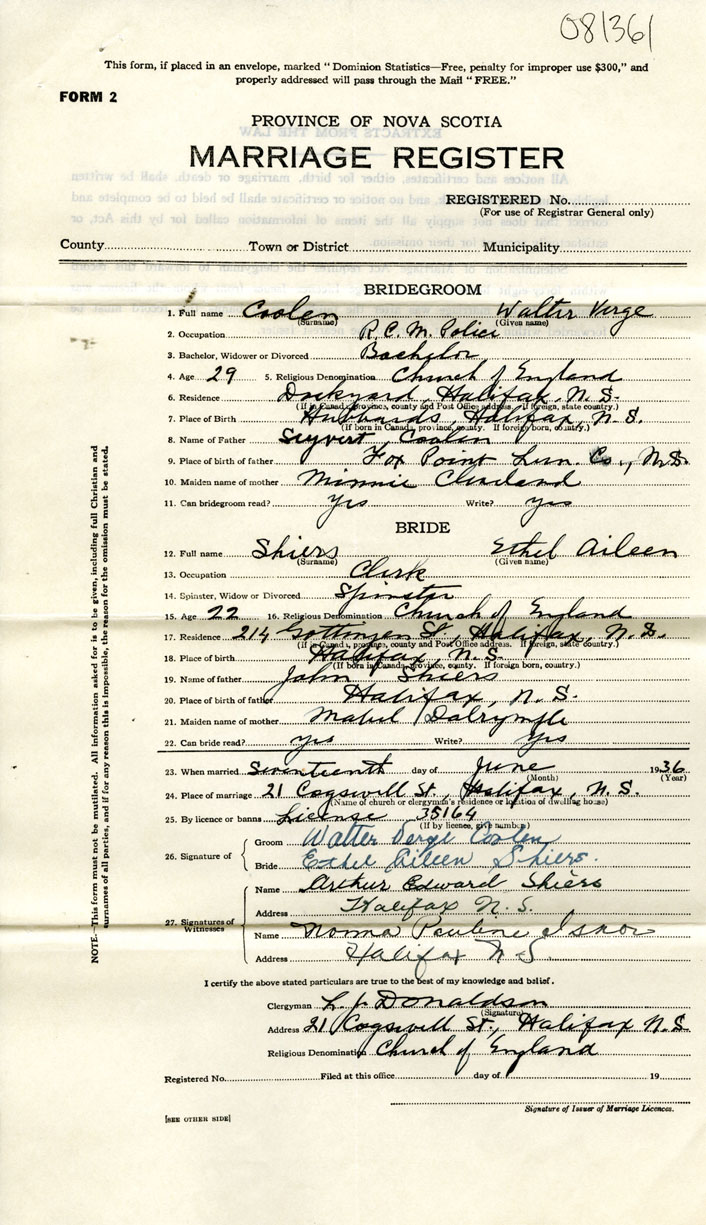 081361
This form, if placed in an envelope, marked "Dominion Statistics—Free, penalty for improper use $300," and
properly addressed will pass through the Mail "FREE."
FORM 2
PROVINCE OF NOVA SCOTIA
MARRIAGE REGISTER
REGISTERED No.
(For use of Registrar General only)
County Town or District Municipality
BRIDEGROOM
1. Full name Coolen Walter Verge
(Surname) (Given name)
2. Occupation R.C.M. Police
3. Bachelor, Widower or Divorced Bachelor
4. Age 29 5. Religious Denomination Church of England
6. Residence Dockyard, Halifax, N.S.
(If in Canada, province, county and Post Office address. If foreign, state country.)
7. Place of Birth Hubbards, Halifax, N.S.
(If born in Canada, province, county. If foreign born, country.)
8. Name of Father Seyvert Coolen
9. Place of birth of father Fox Point Lun. Co., N.S.
10. Maiden name of mother Minnie Cleveland
11. Can bridegroom read? yes Write? yes
BRIDE
12. Full name Shiers Ethel Aileen
(Surname) (Given name)
13. Occupation Clerk
14. Spinster, Widow or Divorced Spinster
15. Age 22 16. Religious Denomination Church of England
17. Residence 214 Gottingen St., Halifax, N.S.
(If in Canada, province, county and Post Office address. If foreign, state country.)
18. Place of birth Halifax, N.S.
(If born in Canada, province, county. If foreign born, country.)
19. Name of father John Shiers
20. Place of birth of father Halifax, N.S.
21. Maiden name of mother Mabel Dalrymple
22. Can bride read? yes Write? yes
23. When married Seventeenth day of June 1936
(Month) (Year)
24. Place of marriage 21 Cogswell St., Halifax, N.S.
(Name of church or clergyman's residence or location of dwelling house)
25. By licence or banns License 35164
(If by licence, give number)
26. Signature of Groom Walter Verge Coolen
Bride Ethel Aileen Shiers.
27. Signatures of Witnesses Name Arthur Edward Shiers
Address Halifax N.S.
Name Norma Pauline Isnor
Address Halifax N.S.
I certify the above stated particulars are true to the best of my knowledge and belief.
Clergyman L. J. Donaldson
(Signature)
Address 21 Cogswell St., Halifax N.S.
Religious Denomination Church of England
Registered No. Filed at this office day of 19
Signature of Issuer of Marriage Licences.
[SEE OTHER SIDE]
NOTE.—This form must not be mutilated. All information asked for is to be given, including full Christian and
surnames of all parties, and if for any reason this is impossible, the reason for the omission must be stated.